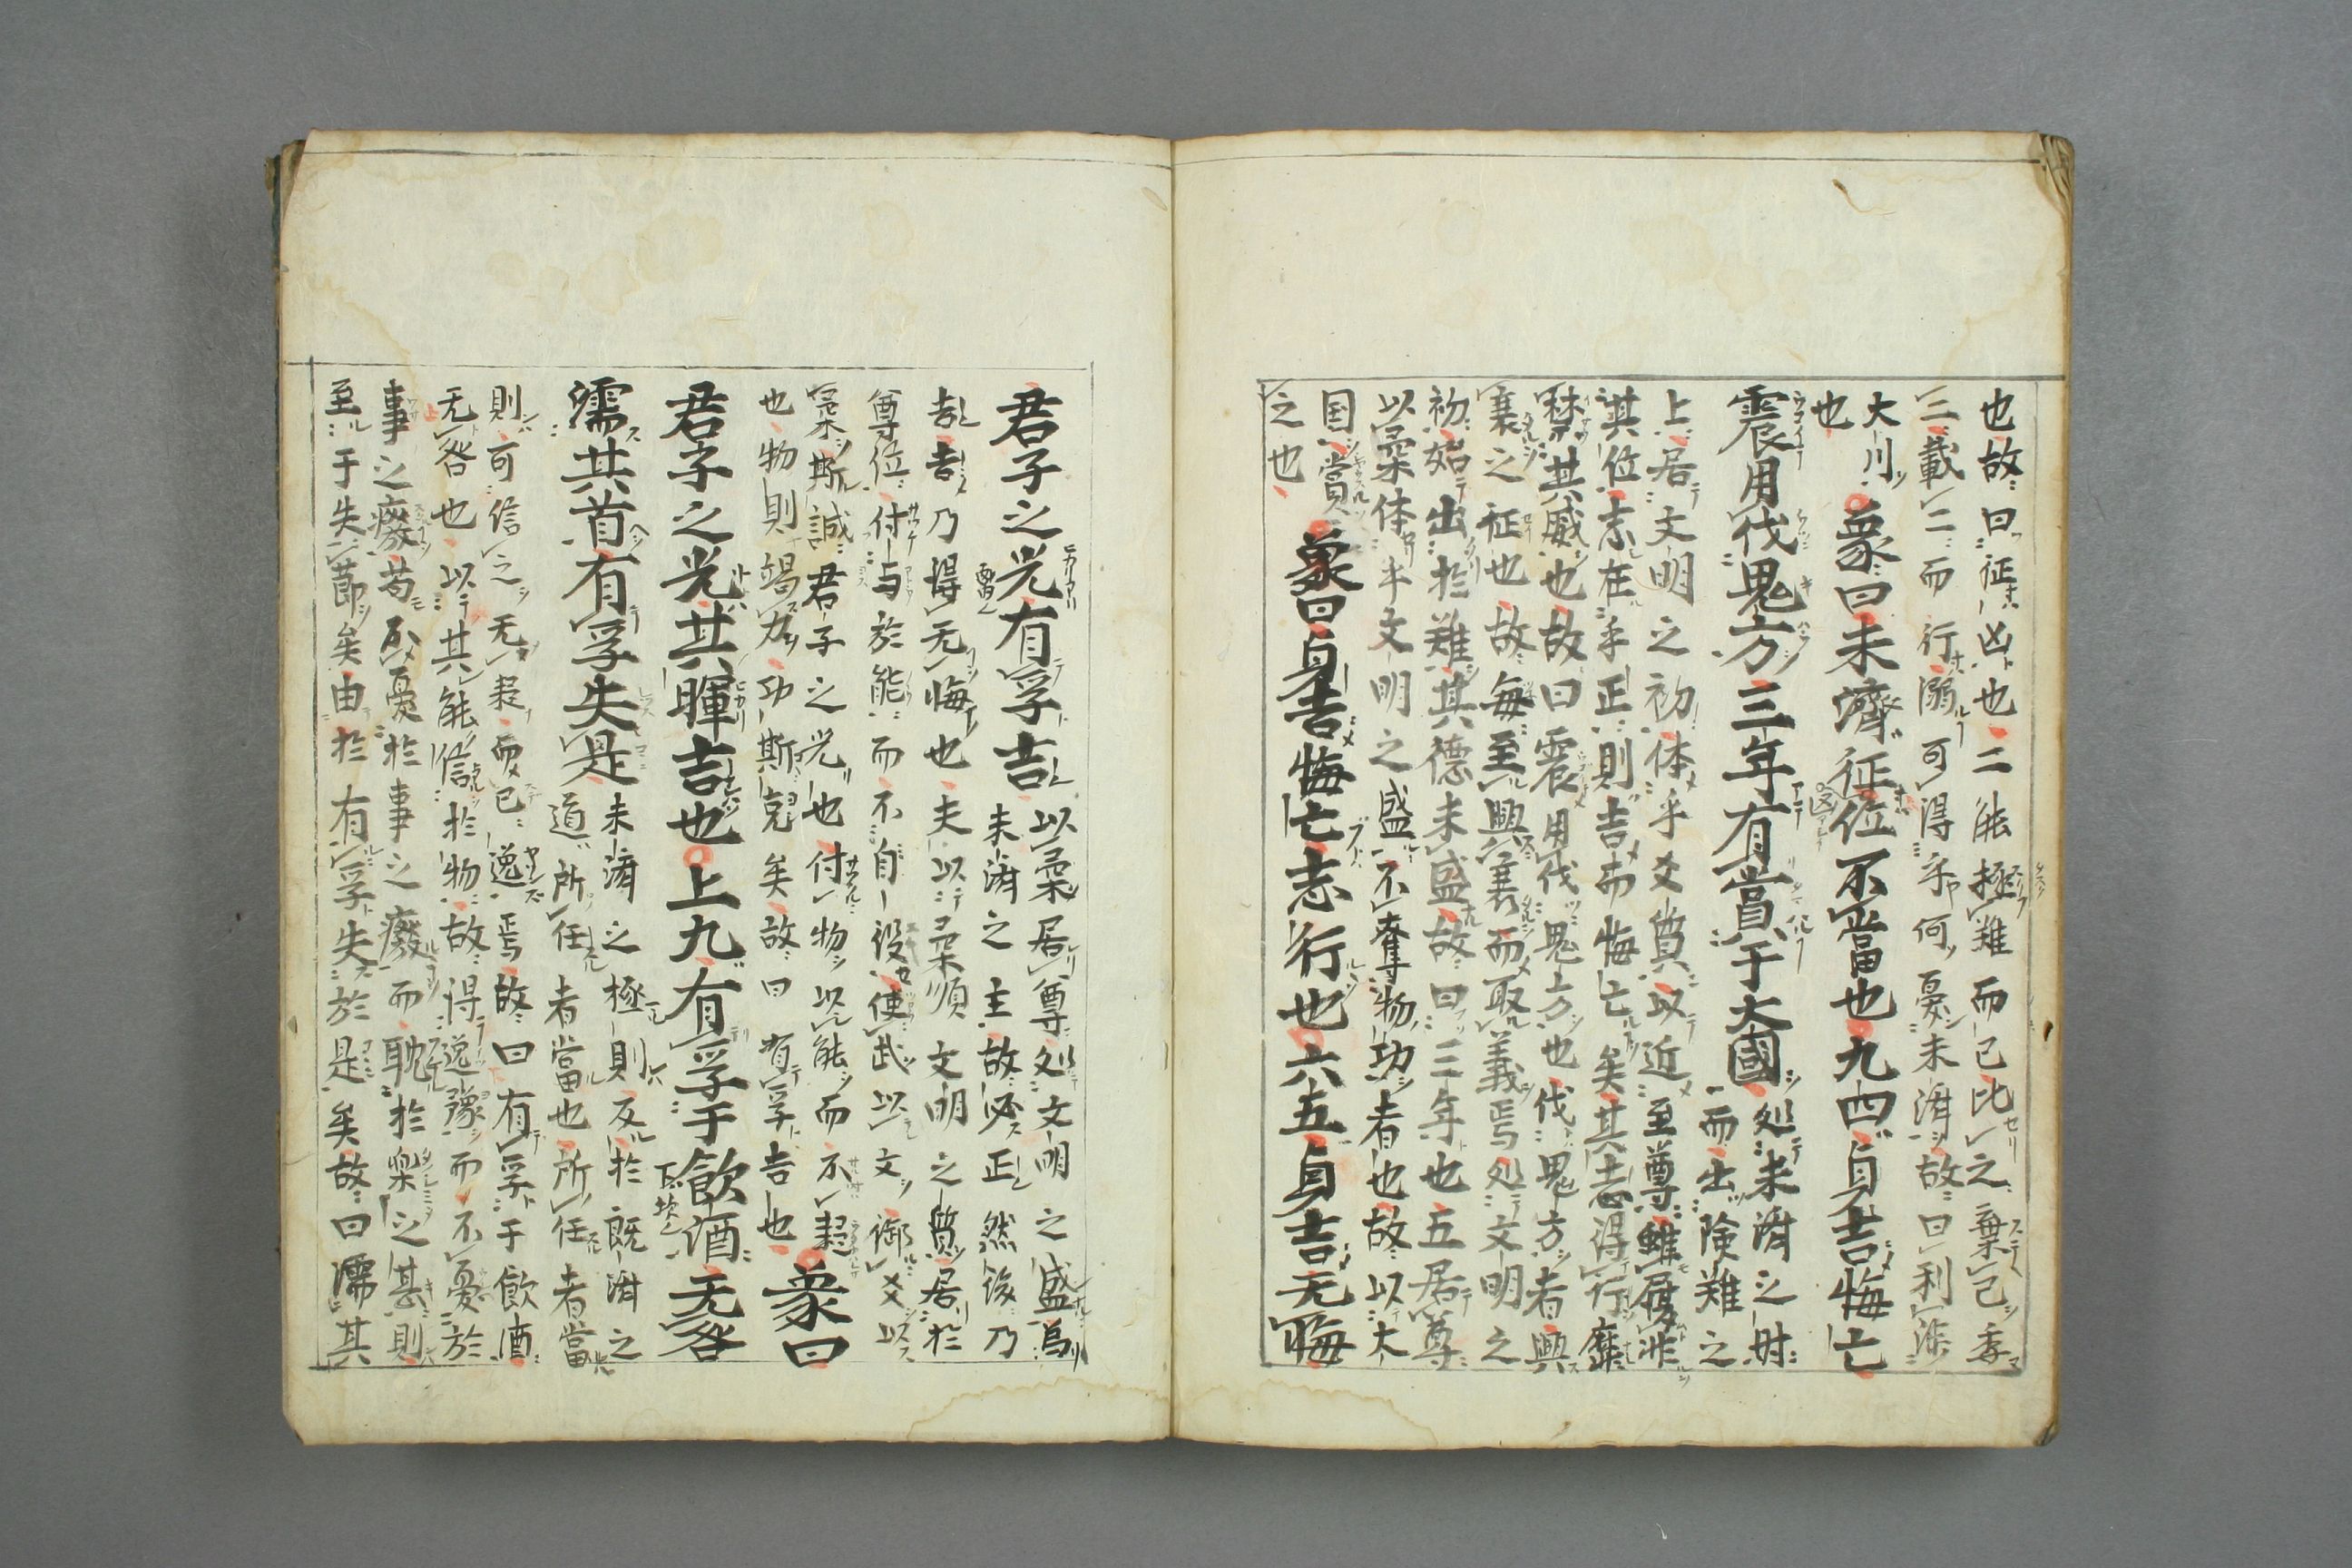 也故曰征凶也二能極難而已比之棄己委
三載二而行溺可得乎何憂未濟故曰利渉
大川
也
象曰未濟征位不當也九四貞吉悔亡
震用伐鬼方三年有賞于大國
処未濟之時
而出険難之
上居文明之初体乎爻質以近至尊雖履非
其位志在乎正則吉而悔亡矣其志得行靡
禁其威也故曰震用伐鬼方也伐鬼方者興
衰之征也故毎至興衰而取義焉処文明之
初始出於難其德未盛故曰三年也五居尊
以柔体乎文明之盛不奪物功者也故以大
国賞
之也
象曰貞吉悔亡志行也六五貞吉无悔
君子之光有孚吉
以柔居尊処文明之盛為
未濟之主故必正然後乃
吉吉乃得无悔也夫以柔順文明之質居於
尊位付与於能而不自役使武以文御爻以
柔斯誠君子之光也付物以能而不疑
也物則竭力功斯克矣故曰有孚吉也
象曰
君子之光其暉吉也上九有孚于飲酒无咎
濡其首有孚失是
未濟之極則反於既濟之
道所任者當也所任者當
則可信之无疑而已逸焉故曰有孚于飲酒
无咎也以其能信於物故得逸豫而不憂於
事之癈苟不憂於事之癈而耽於樂之甚則
至于失節矣由於有孚失於是矣故曰濡其